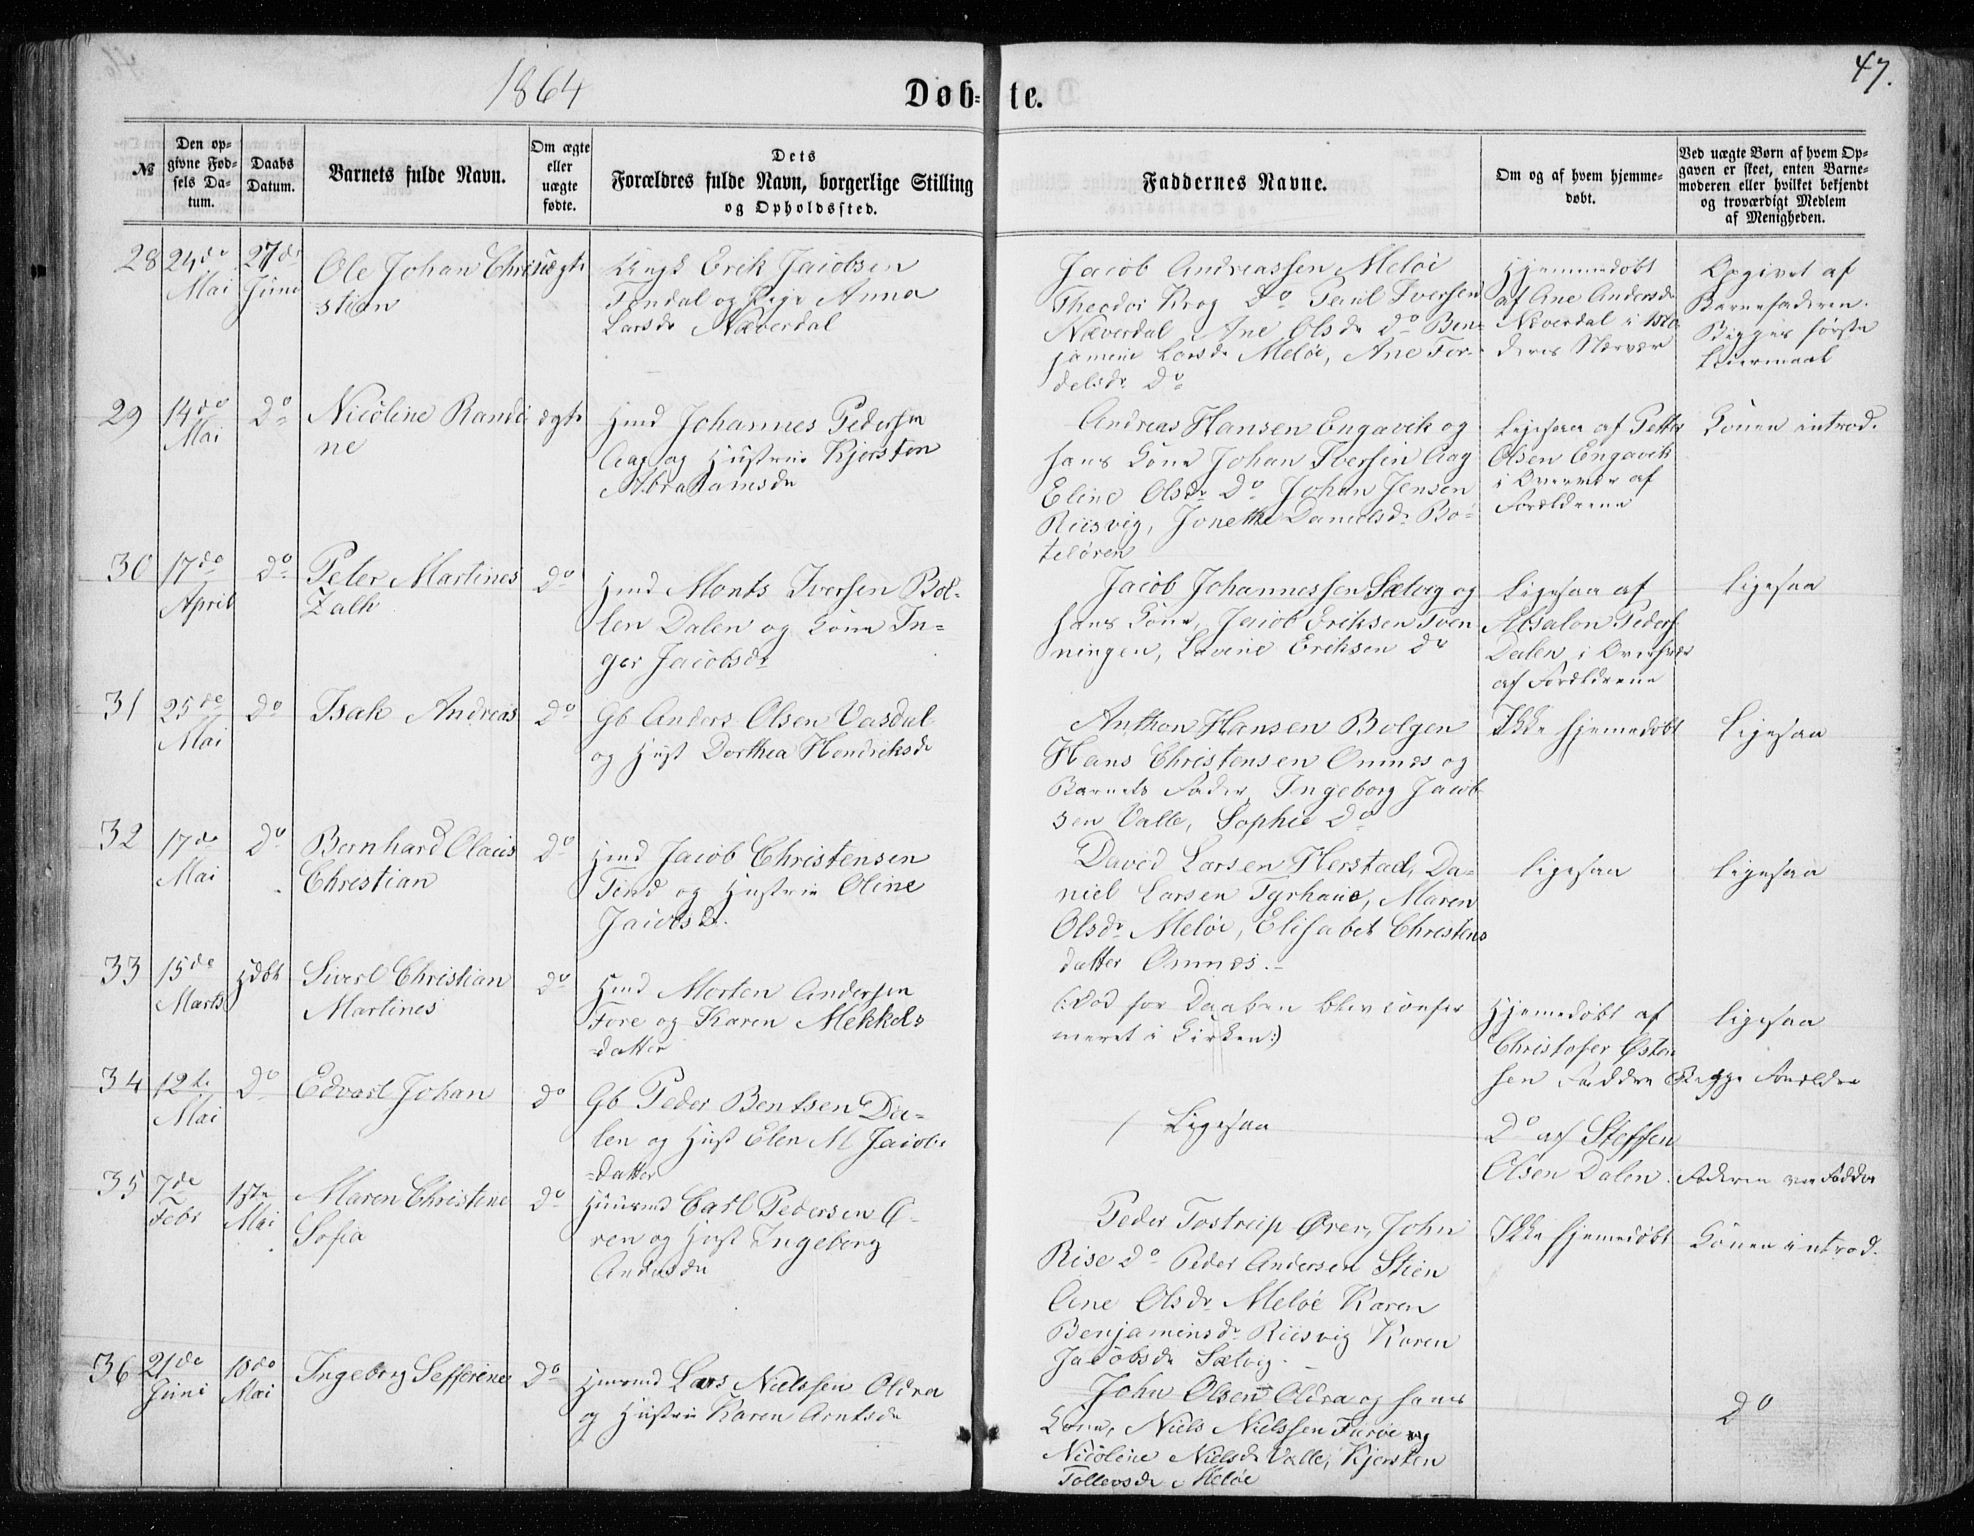 1864
Døb-te.
47.
№
Den op-
givne Fød-
sels Da-
tum.
Daabs
Datum.
Barnets fulde Navn.
Om ægte
eller
uægte
fødte.
Dets
Forældres fulde Navn, borgerlige Stilling
og Opholdssted.
Faddernes Navne.
Om og af hvem hjemme-
døbt.
Ved uægte Børn af hvem Op-
gaven er skeet, enten Barne-
moderen eller hvilket bekjendt
og troværdigt Medlem
af Menigheden.
28
24de
Mai
27de
Juni
Ole Johan Chri-
stian
uægte
Ungk Erik Jacobsen
Tendal og Pige Anna
Larsdr Næverdal
Jacob Andreassen Meløi
Theodor Krog Do Paul Iversen
Næverdal, Ane Olsdr Do Ben-
jamine Larsdr Meløe, Ane Tor-
delsdr Do
Hjemmedøbt
af Ane Andersdr
Næverdal i Mo-
ders Nærvær
Opgivet af
Barnefaderen.
Begges første
Leiermaal
29
14de
Mai
Do
Nicoline Randi
ne
ægte
Hmd Johannes Pedersen
Aag og Hustrue Kjersten
Abrahamsdr
Andreas Hansen Engavik og
hans Kone Johan Iversen Aag
Eline Olsdr Do Johan Jensen
Riisvig, Jonetha Danielsdr Bo-
teløren
Ligesaa af Petter
Olsen Engavik
i Overvær af
Forældrene
Konen introd.
30
17de
April
Do
Peter Martines
Zalk
Do
Hmd Monts Iversen Bol-
len Dalen og Kone In-
ger Jacobsdr
Jacob Johannessen Sætvig og
hans Kone, Jacob Eriksen Tven
ningen, Lovine Eriksen do
Ligesaa af
Absalon Peders
Dalen i Overvær
af Forældrene
Ligesaa
31
25de
Mai
Do
Isak Andreas
Do
Gb Anders Olsen Vasdal
og Hust Dorthea Hendriksdr
Anthon Hansen Bolgen
Hans Christensen Ønnes og
Barnets Fader, Ingeborg Jacob-
sen Valle, Sophie Do
Ikke hjemedøbt
Ligesaa
32
17de
Mai
Do
Bernhard Olaus
Christian
Do
Hmd Jacob Christensen
Tend og Hustrue Oline
Jacobsd.
David Larsen Herstad, Da-
niel Larsen Tyrhaug, Maren
Olsdr Meløe, Elisabet Christens
datter Ønnes.
Ligesaa
Ligesaa
33
15de
Marts
Hdbt
Sivert Christian
Martines
Do
Hmd Morten Andersen
Fore og Karen Mekkels
datter
(:Død før Daaben blev confir
meret i Kirken:)
Hjemedøbt af
Christofer Østen
sen Faddre
Ligesaa
34
12te
Mai
Do
Edvart Johan
Do
Gb Peder Bentsen Da-
len og Hust Elen M Jacobs
datter
Ligesaa
Do af Steffen
Olsen Dalen.
Begge Forældre
Faderen var Fadder
35
7de
Febr
18de
Mai
Maren Christene
Sofia
Do
Huusmd Carl Pedersen Ø-
ren og Hust Ingeborg
Andersdr
Peder Tostrup Øren, John
Rise do Peder Andersen Stien
Ane Olsdr Meløe Karen
Benjaminsdr Riisvig Karen
Jacobsdr Sætvig.
Ikke hjemedøbt
Konen introd.
36
21de
Juni
18de
Mai
Ingeborg Sefferine
Do
Huusmd Lars Nielssen Oldra
og Hustrue Karen Arntsdr
John Olsen Oldra og hans
Kone, Niels Nielssen Furøe og
Nicoline Nielsdr Valle, Kjersten
Tollevsdr Meløe
Do